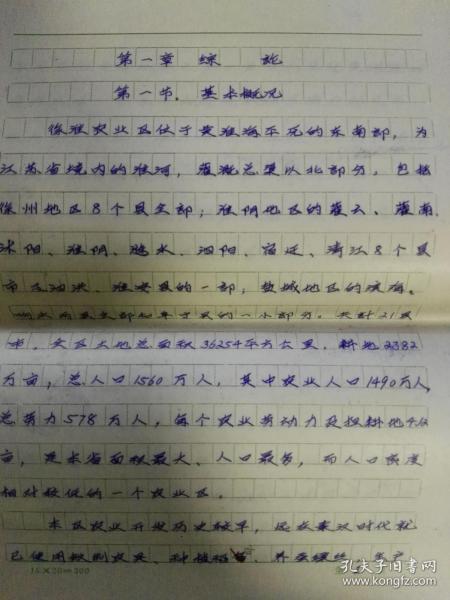 第一章 综 论
第一节. 基本概况
徐淮农业区位于黄淮海平元的东南部，为
江苏省境内的淮河，灌溉总渠以北部分，包括
徐州地区8个县全部；淮阴地区的灌云、灌南.
沭阳、淮阴、涟水、泗阳、宿迁、清江8个县
市及泗洪、淮安县的一部；盐城地区的滨海.
响水两县全部和阜宁县的一小部分。共计21县
市. 全区土地总面积36254平方公里. 耕地2382
万亩，总人口1560万人，其中农业人口1490万人,
总劳力578万人，每个农业劳动力负担耕地
亩，是本省面积最大、人口最多，而人口密度
相对较低的一个农业区。
本区农业开发历史较早，远在秦汉时代就
已使用 农具、种植 、养蚕缫丝.
15×20=300
孔夫子旧书网